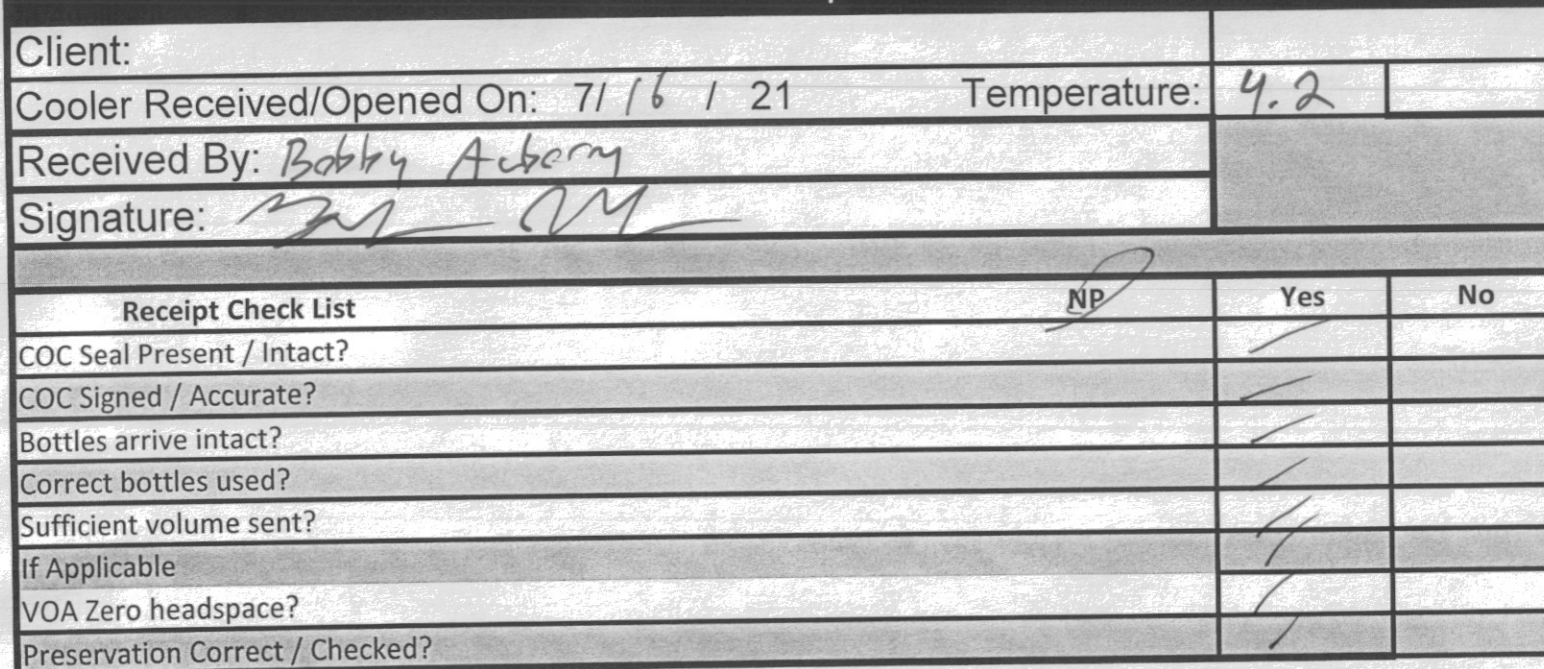 Client:
Cooler Received/Opened On: 7/ 16 / 21 Temperature: 4.2
Received By: Bobby
Signature:
Receipt Check List NP Yes No
COC Seal Present / Intact?
COC Signed / Accurate?
Bottles arrive intact?
Correct bottles used?
Sufficient volume sent?
If Applicable
VOA Zero headspace?
Preservation Correct / Checked?